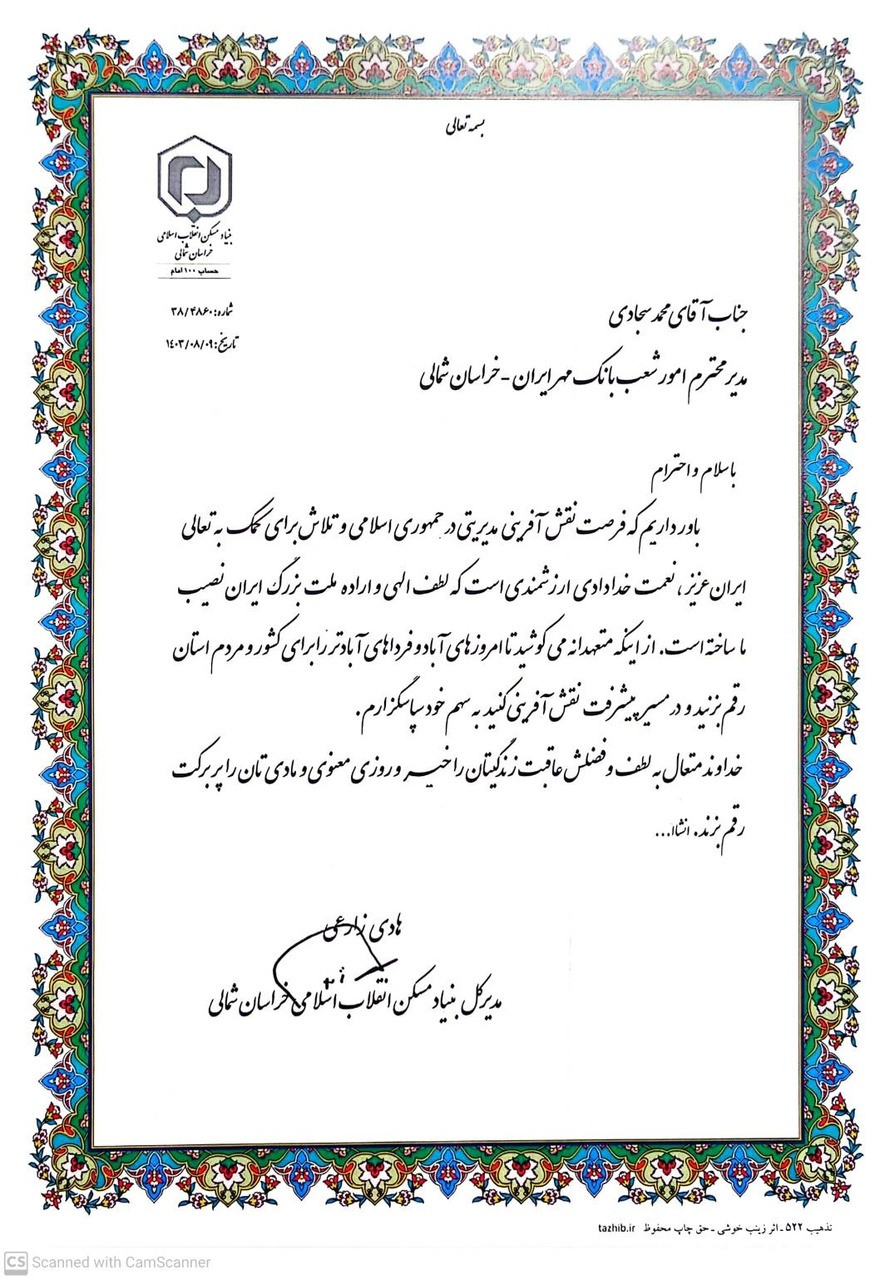 بسمه تعالی
بنیاد مسکن انقلاب اسلامی
خراسان شمالی
حساب ۱۰۰ امام
شماره: ۳۸/۴۸۶۰
تاریخ: ۱۴۰۳/۰۸/۰۹
جناب آقای محمد سجادی
مدیر محترم امور شعب بانک مهر ایران - خراسان شمالی
با سلام و احترام
باور داریم که فرصت نقش آفرینی مدیریتی در جمهوری اسلامی و تلاش برای کمک به تعالی
ایران عزیز، نعمت خدادادی ارزشمندی است که لطف الهی و اراده ملت بزرگ ایران نصیب
ما ساخته است. از اینکه متعهدانه می کوشید تا امروزهای آباد و فرداهای آبادتر را برای کشور و مردم استان
رقم بزنید و در مسیر پیشرفت نقش آفرینی کنید به سهم خود سپاسگزارم.
خداوند متعال به لطف و فضلش عاقبت زندگیتان را خیر و روزی معنوی و مادی تان را پر برکت
رقم بزند. انشاا...
هادی زارعی
مدیرکل بنیاد مسکن انقلاب اسلامی خراسان شمالی
تذهیب ۵۲۲ - اثر زینب خوشی - حق چاپ محفوظ tazhib.ir
CS Scanned with CamScanner